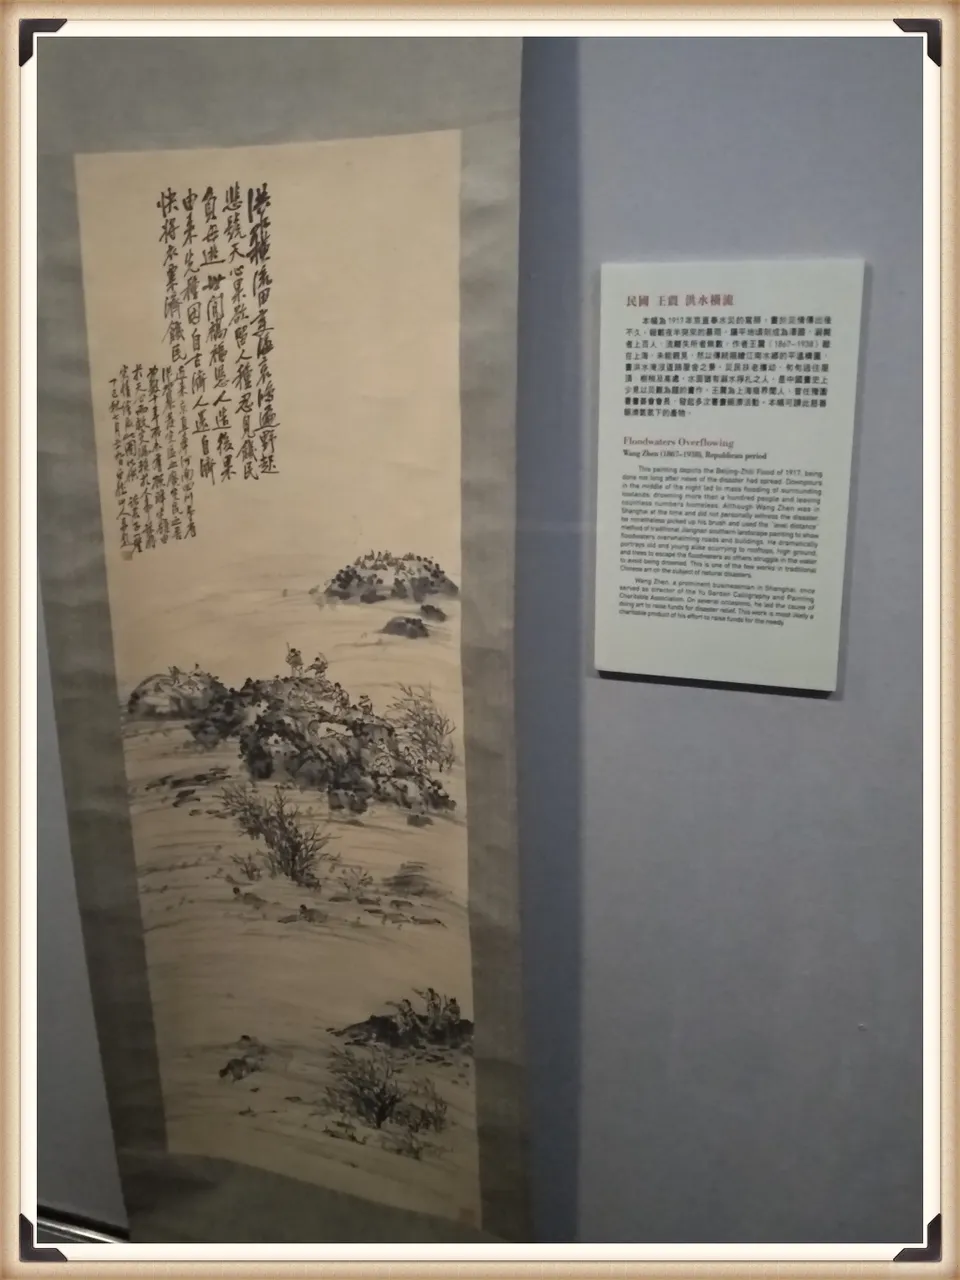 洪水橫流田宅淹哀鴻遍野起
悲號天心果欲留人種忍見饑民
負母逃世間禍福憑人造後果
由來先種因自古濟人還自濟
快將衣粟濟饑民
近來京直奉河南四川等省
民國 王震 洪水橫流
本幅為1917年京直奉水災的寫照，畫於災情傳出後
不久。報載夜半突來的暴雨，讓平地頃刻成為澤國，溺斃
者上百人，流離失所者無數。作者王震（1867-1938）雖
在上海，未能親見，然以傳統描繪江南水鄉的平遠構圖，
畫洪水淹沒道路屋舍之景。災民扶老攜幼，匆匆逃往屋
頂、樹梢及高處，水面猶有溺水掙扎之人，是中國畫史上
少見以災難為題的畫作。王震為上海商界聞人，曾任豫園
書畫善會會長，發起多次書畫賑濟活動。本幅可謂此慈善
賑濟氛圍下的產物。
Floodwaters Overflowing
Wang Zhen (1867-1938), Republican period
This painting depicts the Beijing-Zhili Flood of 1917, being
done not long after news of the disaster had spread. Downpours
in the middle of the night led to mass flooding of surrounding
lowlands, drowning more than a hundred people and leaving
countless numbers homeless. Although Wang Zhen was in
Shanghai at the time and did not personally witness the disaster,
he nonetheless picked up his brush and used the "level distance"
method of traditional Jiangnan southern landscape painting to show
floodwaters overwhelming roads and buildings. He dramatically
portrays old and young alike scurrying to rooftops, high ground,
and trees to escape the floodwaters as others struggle in the water
to avoid being drowned. This is one of the few works in traditional
Chinese art on the subject of natural disasters.
Wang Zhen, a prominent businessman in Shanghai, once
served as director of the Yu Garden Calligraphy and Painting
Charitable Association. On several occasions, he led the cause of
doing art to raise funds for disaster relief. This work is most likely a
charitable product of his effort to raise funds for the needy.